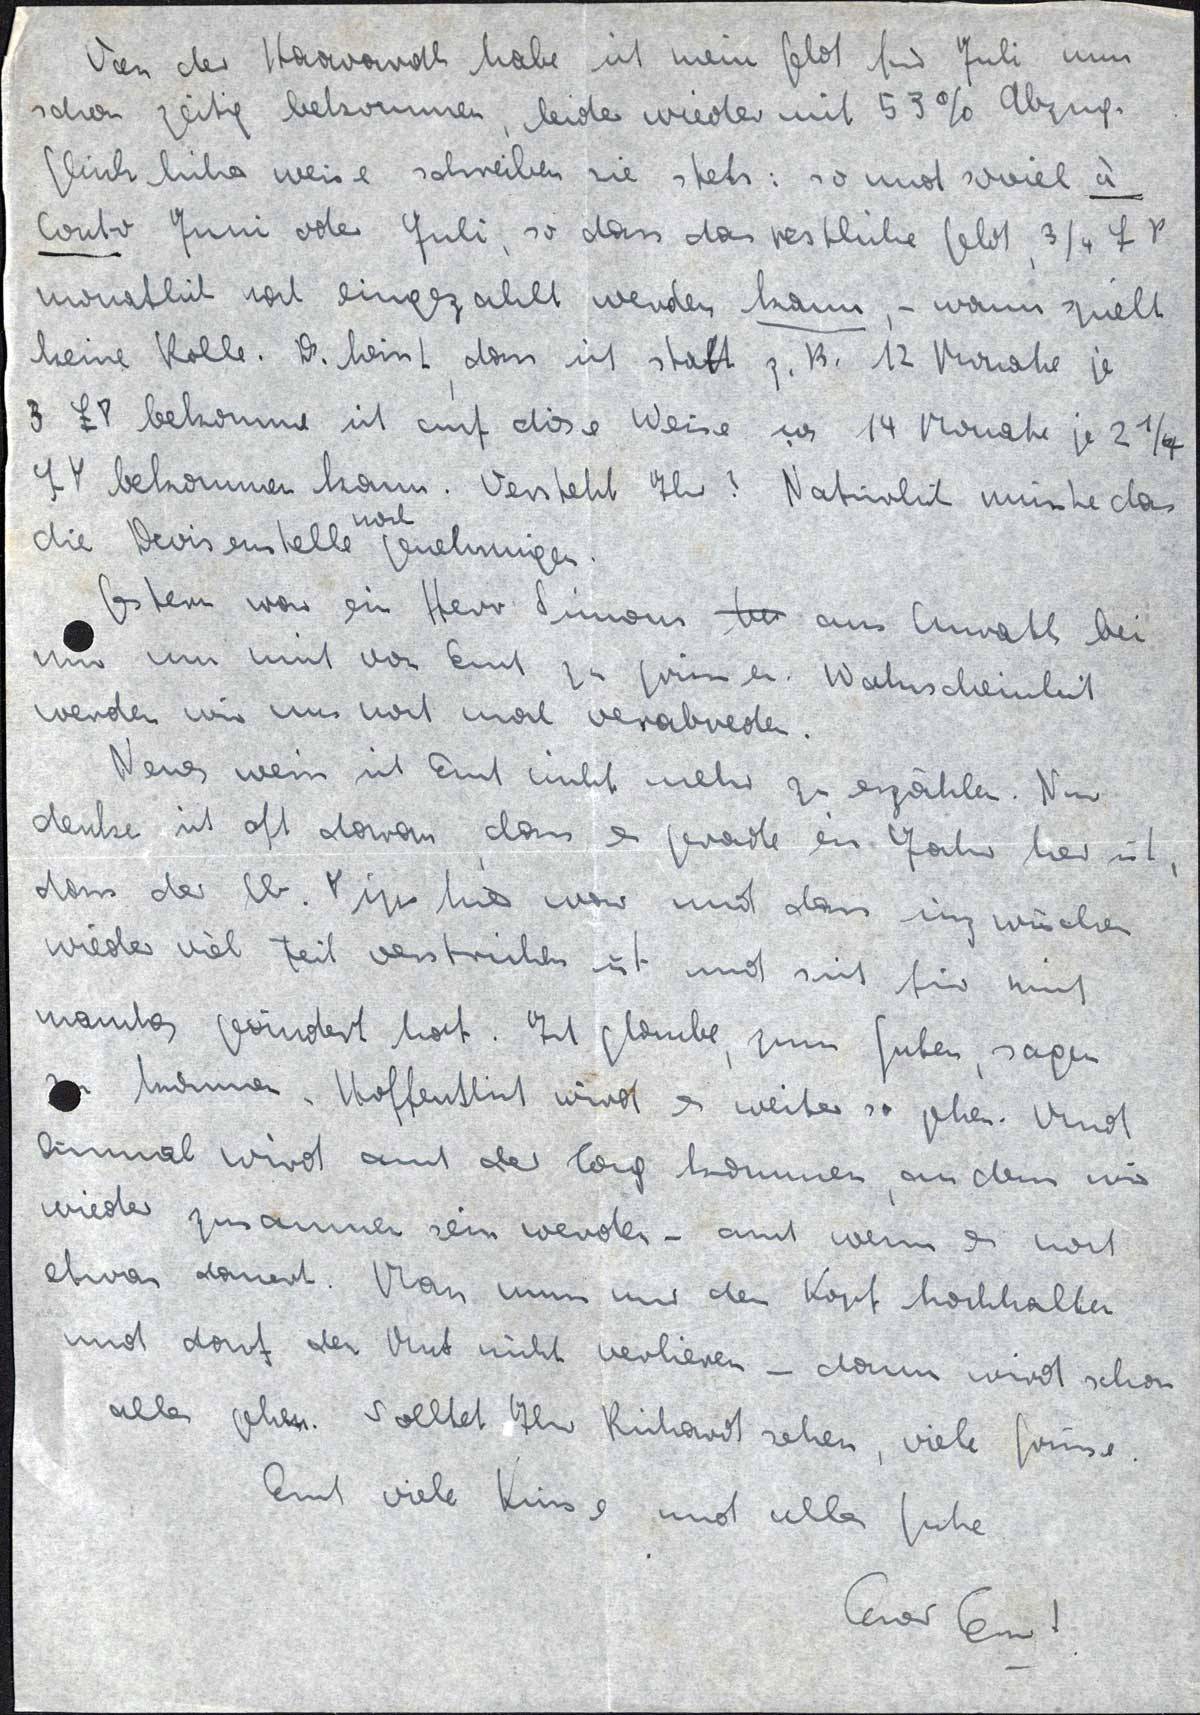 Von der Haavarah habe ich mein Geld für Juli nun
schon zeitig bekommen, leider wieder mit 53% Abzug.
Glücklicherweise schreiben sie stets: so und soviel à
Conto Juni oder Juli, so dass das restliche Geld, 3/4 £ P
monatlich noch eingezahlt werden kann, – wann spielt
keine Rolle. D. heisst, dass ich statt z. B. 12 Monate je
3 £P bekomme ich auf diese Weise 14 Monate je 2 1/4
£P bekommen kann. Versteht Ihr? Natürlich müsste das
die Devisenstelle noch genehmigen.
Gestern war ein Herr Simons aus bei
mir um mich von Euch zu grüssen. Wahrscheinlich
werden wir uns noch mal verabreden.
Neues weiss ich Euch nicht mehr zu erzählen. Nur
denke ich oft daran, dass es gerade ein Jahr her ist,
dass der lb. hier war und dass inzwischen
wieder viel Zeit verstrichen ist und sich für mich
manches geändert hat. Ich glaube, zum Guten, sagen
zu können. Hoffentlich wird es weiter so gehen. Und
Einmal wird auch der Tag kommen, an dem wir
wieder zusammen sein werden – auch wenn es noch
etwas dauert. Man muss nur den Kopf hochhalten
und darf den Mut nicht verlieren – dann wird schon
alles gehen. Solltet Ihr Richard sehen, viele Grüsse.
Euch viele Küsse und alles Gute
Euer